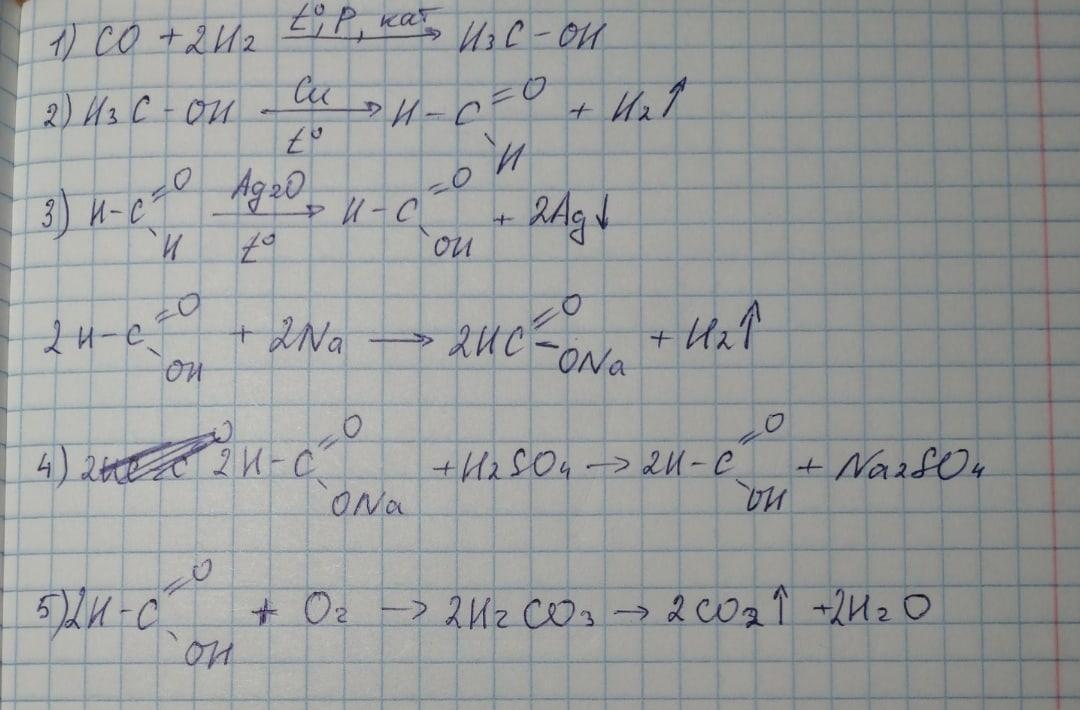 1) CO + 2H₂ —t°, P, кат→ H₃C – OH
2) H₃C – OH —Cu, t°→ H – C(=O)–H + H₂↑
3) H – C(=O)–H —Ag₂O, t°→ H – C(=O)–OH + 2Ag↓
2 H – C(=O)–OH + 2Na → 2HC(=O)–ONa + H₂↑
4) 2H – C(=O)–ONa + H₂SO₄ → 2H – C(=O)–OH + Na₂SO₄
5) 2H – C(=O)–OH + O₂ → 2H₂CO₃ → 2CO₂↑ + 2H₂O